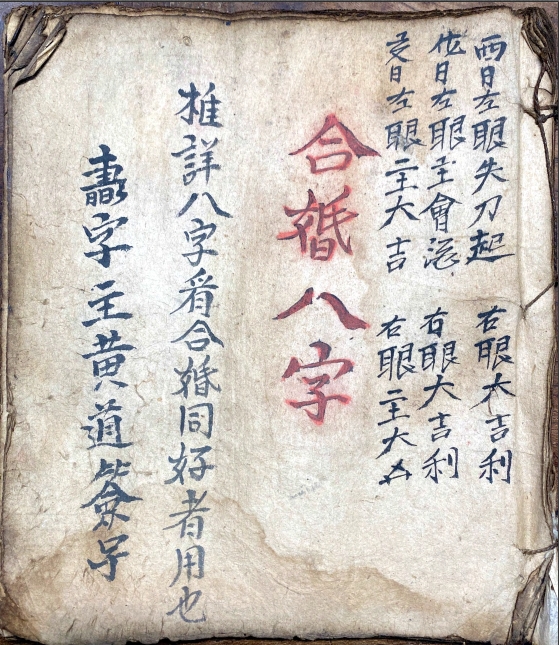 酉日左眼失刀起 右眼大吉利
日左眼主會 右眼大吉利
日左眼主大吉 右眼主大
合婚八字
推詳八字看合婚同好者用也
字主黄道